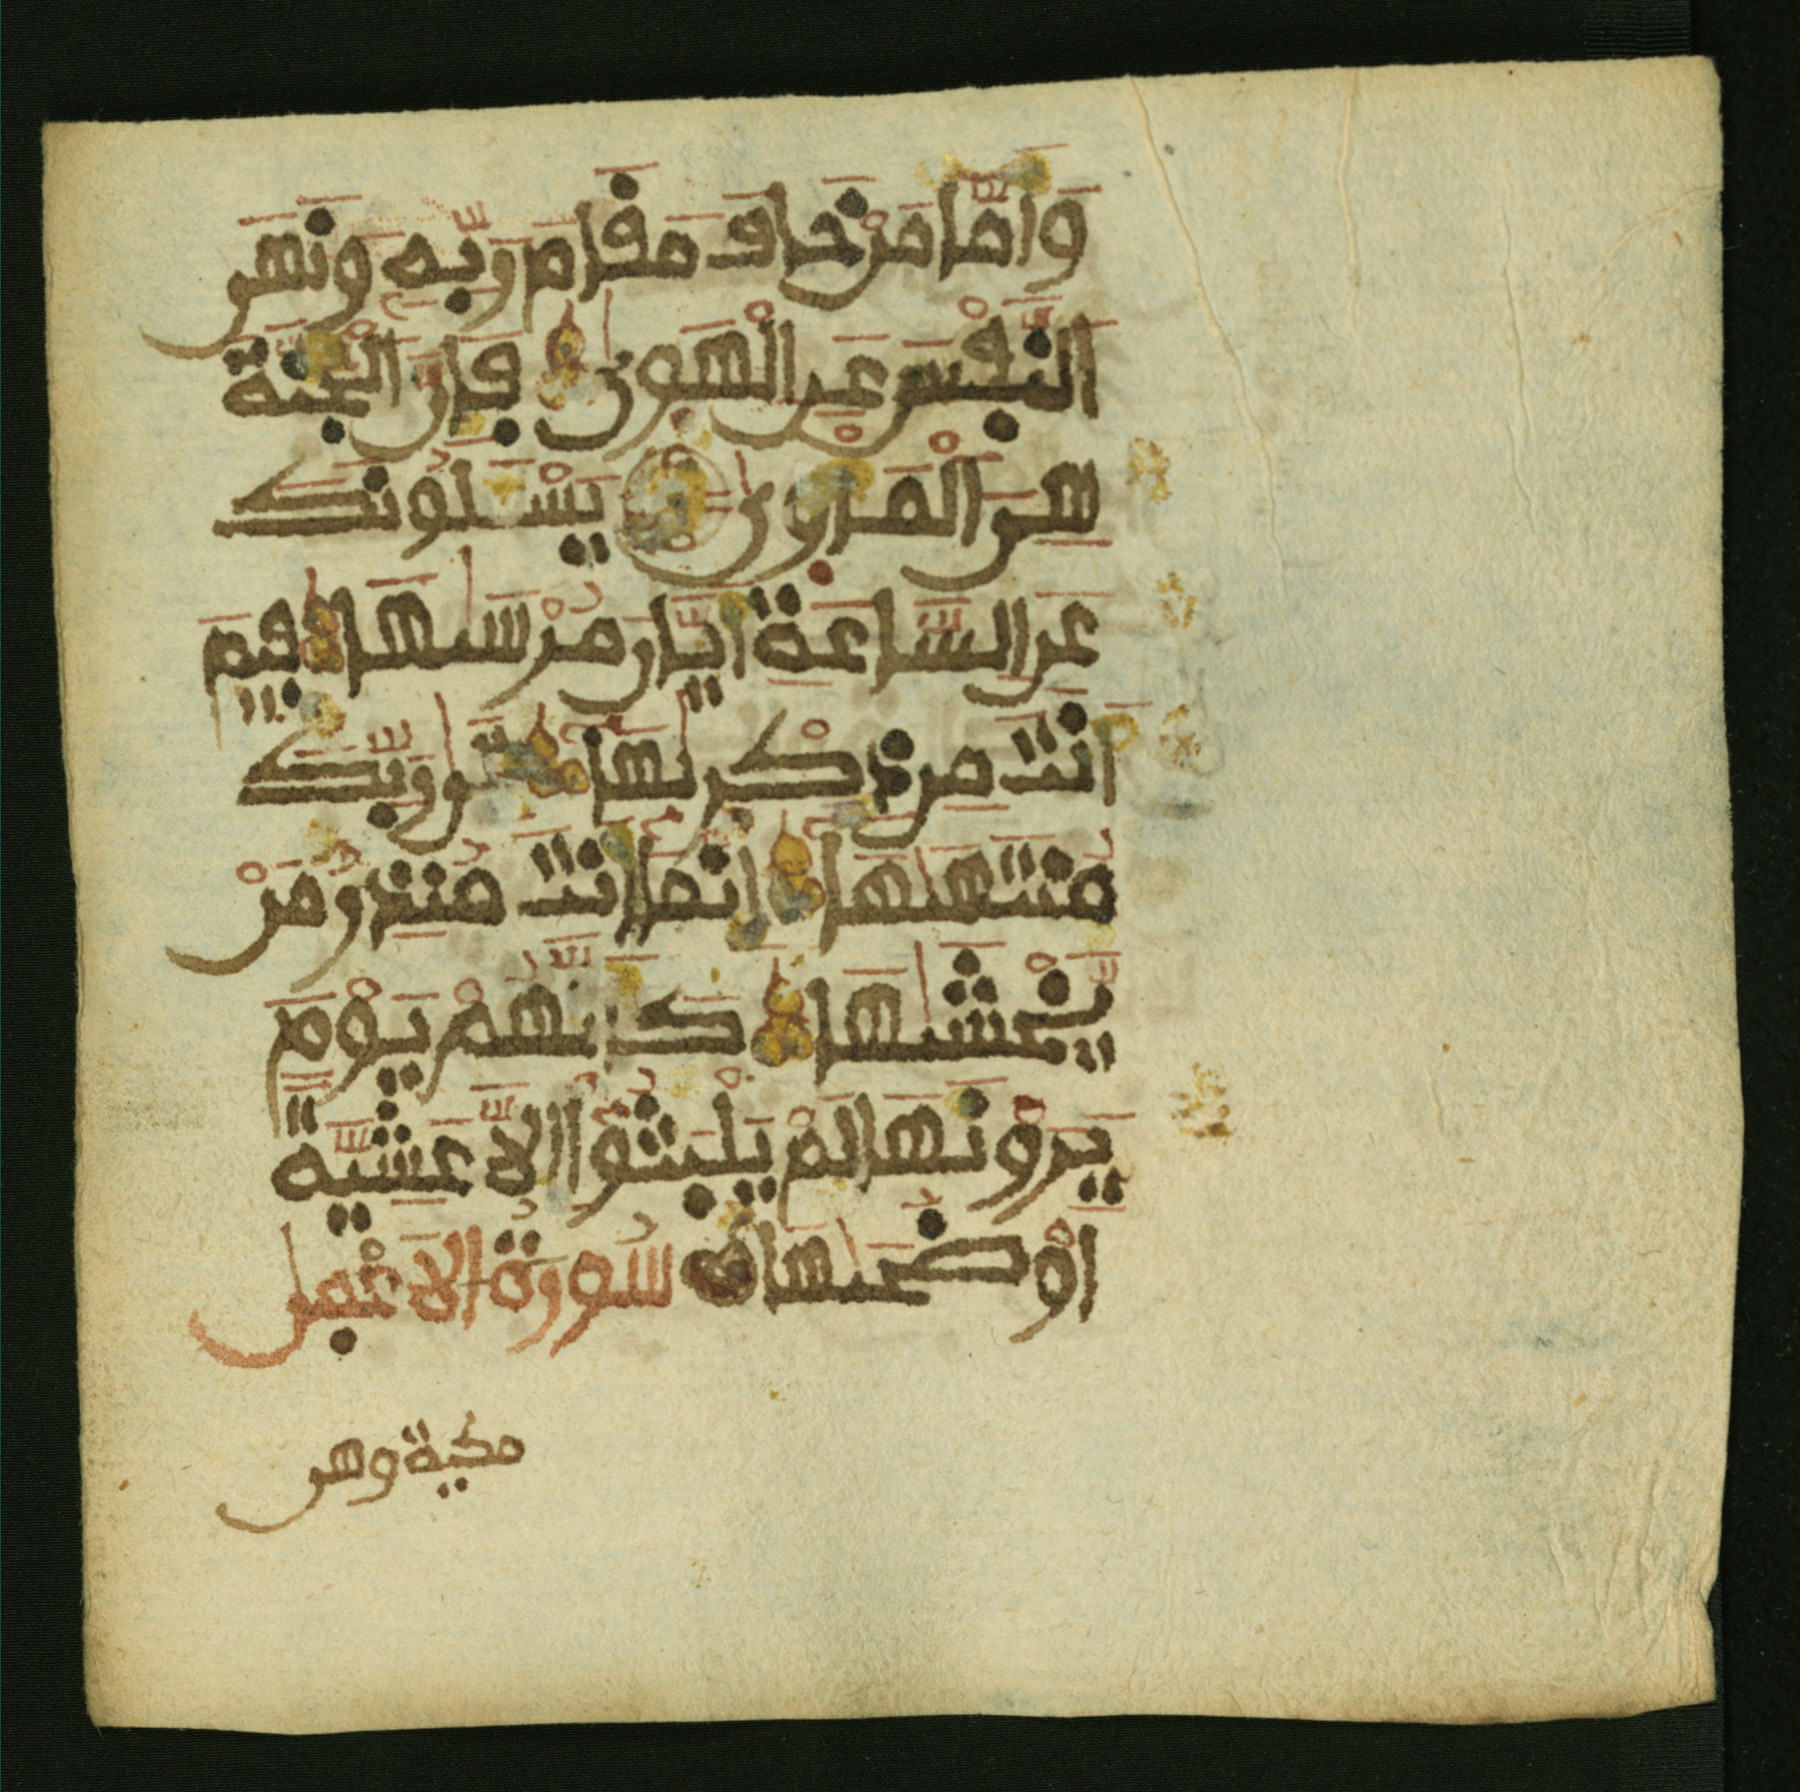 وَأَمَّا مَنْ خَافَ مَقَامَ رَبِّهِ وَنَهَى
النَّفْسَ عَنِ الْهَوَىٰ فَإِنَّ الْجَنَّةَ
هِيَ الْمَأْوَىٰ يَسْـَٔلُونَكَ
عَنِ السَّاعَةِ أَيَّانَ مُرْسَىٰهَا فِيمَ
أَنتَ مِن ذِكْرَىٰهَا إِلَىٰ رَبِّكَ
مُنتَهَىٰهَا إِنَّمَا أَنتَ مُنذِرُ مَنْ
يَخْشَىٰهَا كَأَنَّهُمْ يَوْمَ
يَرَوْنَهَا لَمْ يَلْبَثُوا إِلَّا عَشِيَّةً
أَوْ ضُحَىٰهَا سُورَةُ الْأَعْمَىٰ
مكية وهي